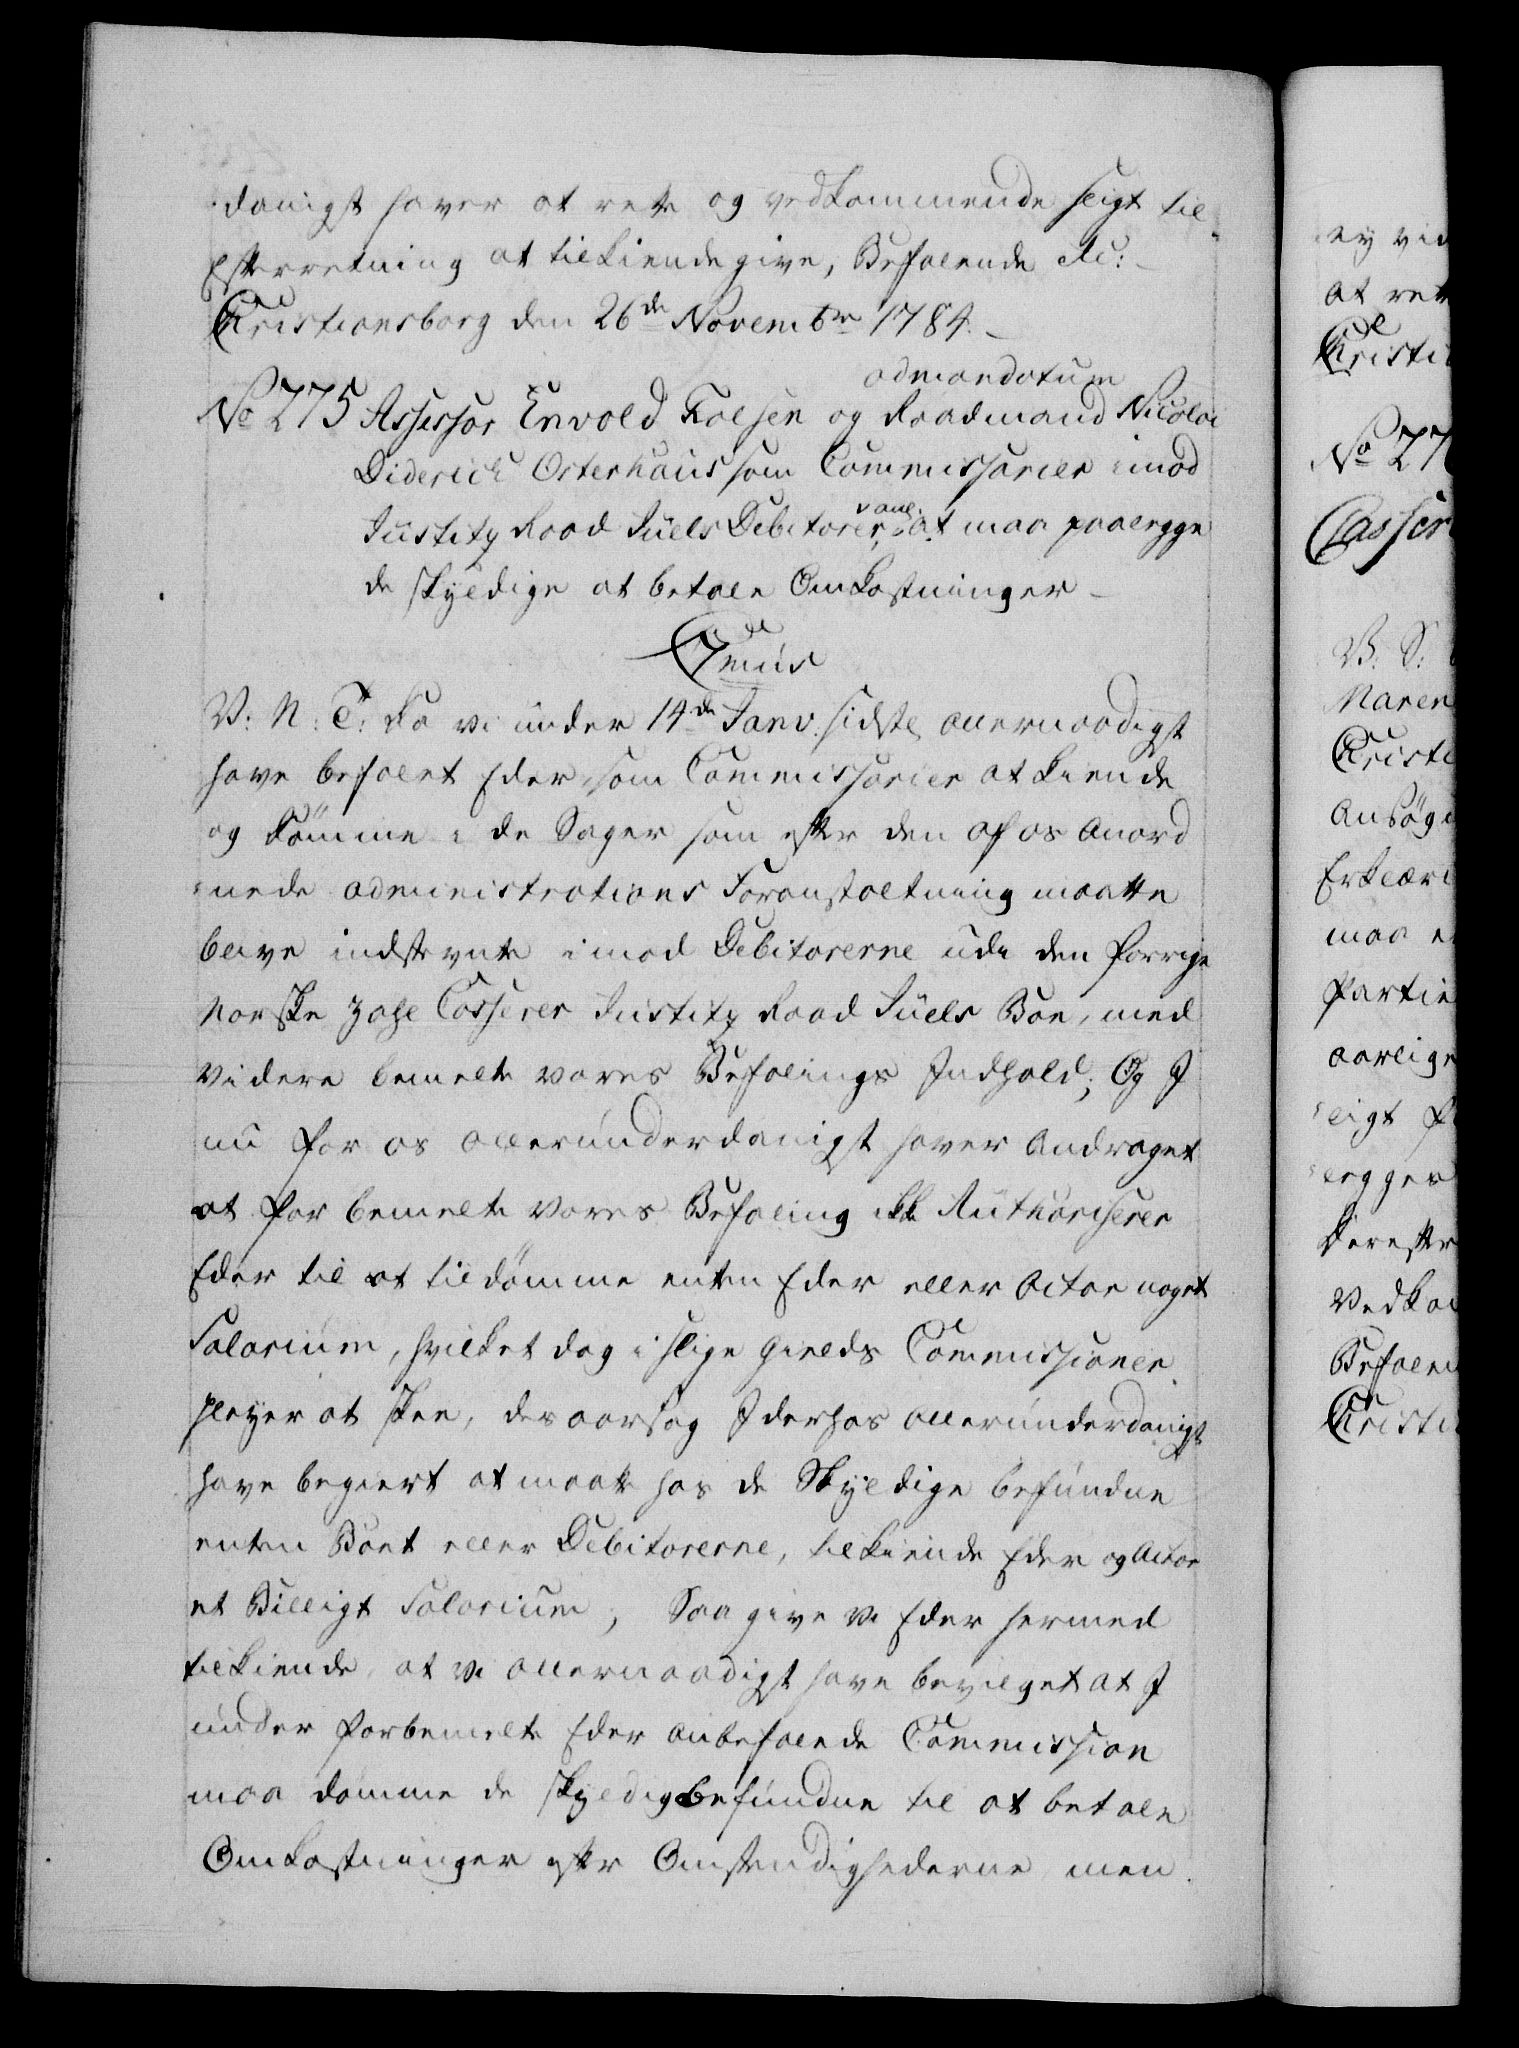 danigst haver at rette og vedkommende sligt til
Efterretning at tilkiendegive, Befalende &c:
Christiansborg den 26de Novembr 1784.
admandatum
No 275 Assessor Envold Falsen og Raadmand Nicolai
Diderich Osterhaus som Commissarier imod
Justitz Raad Juels Debitorer, at maa paalegge
de skyldige at betale Omkostninger
C7mus
V: N: T: Da vi under 14de Janv. sidste allernaadigst
have befalet Eder som Commissarier at kiende
og dömme i de Sager som efter den af os anord
nede administrations Foranstaltning maatte
blive indstevnte imod Debitorerne udi den forrige
Norske Zahl Casserer Justitz Raad Juels Boe, med
videre bemelte vores Befalings Indhold; Og I
nu for os allerunderdanigst haver andraget
at forbemelte vores Befaling ikke Authoriserer
Eder til at tildömme enten Eder eller Actor noget
Salarium, hvilket dog i slige Gields Commissioner
pleyer at skee, desaarsag I derhos allerunderdanigst
have begiert at maatte hos de Skyldige befundne
enten Boet eller Debitorerne, tilkiende Eder og Actor
et Billigt Salarium, Saa give vi Eder hermed
tilkiende, at vi allernaadigst have bevilget at I
under forbemelte Eder anbefalede Commission
maa dömme de skyldigbefundne til at betale
Omkostninger efter Omstendighederne men
ey vid
at ret
Christi
No 27
Casser
V: S:
Maren
Christi
Ansög
Erklæri
maa e
Partie
aarlige
ligt f
legges
derefter
Vedko
Befalen
Christi